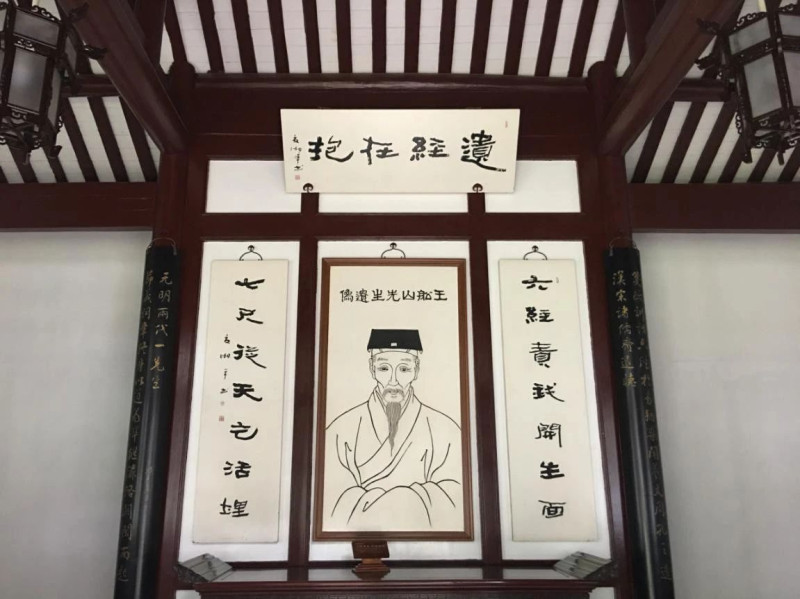 遺經在抱
王船山先生遺像
六經責我開生面
七尺從天乞活埋
漢宋諸儒齊退聽
元明兩代一先生